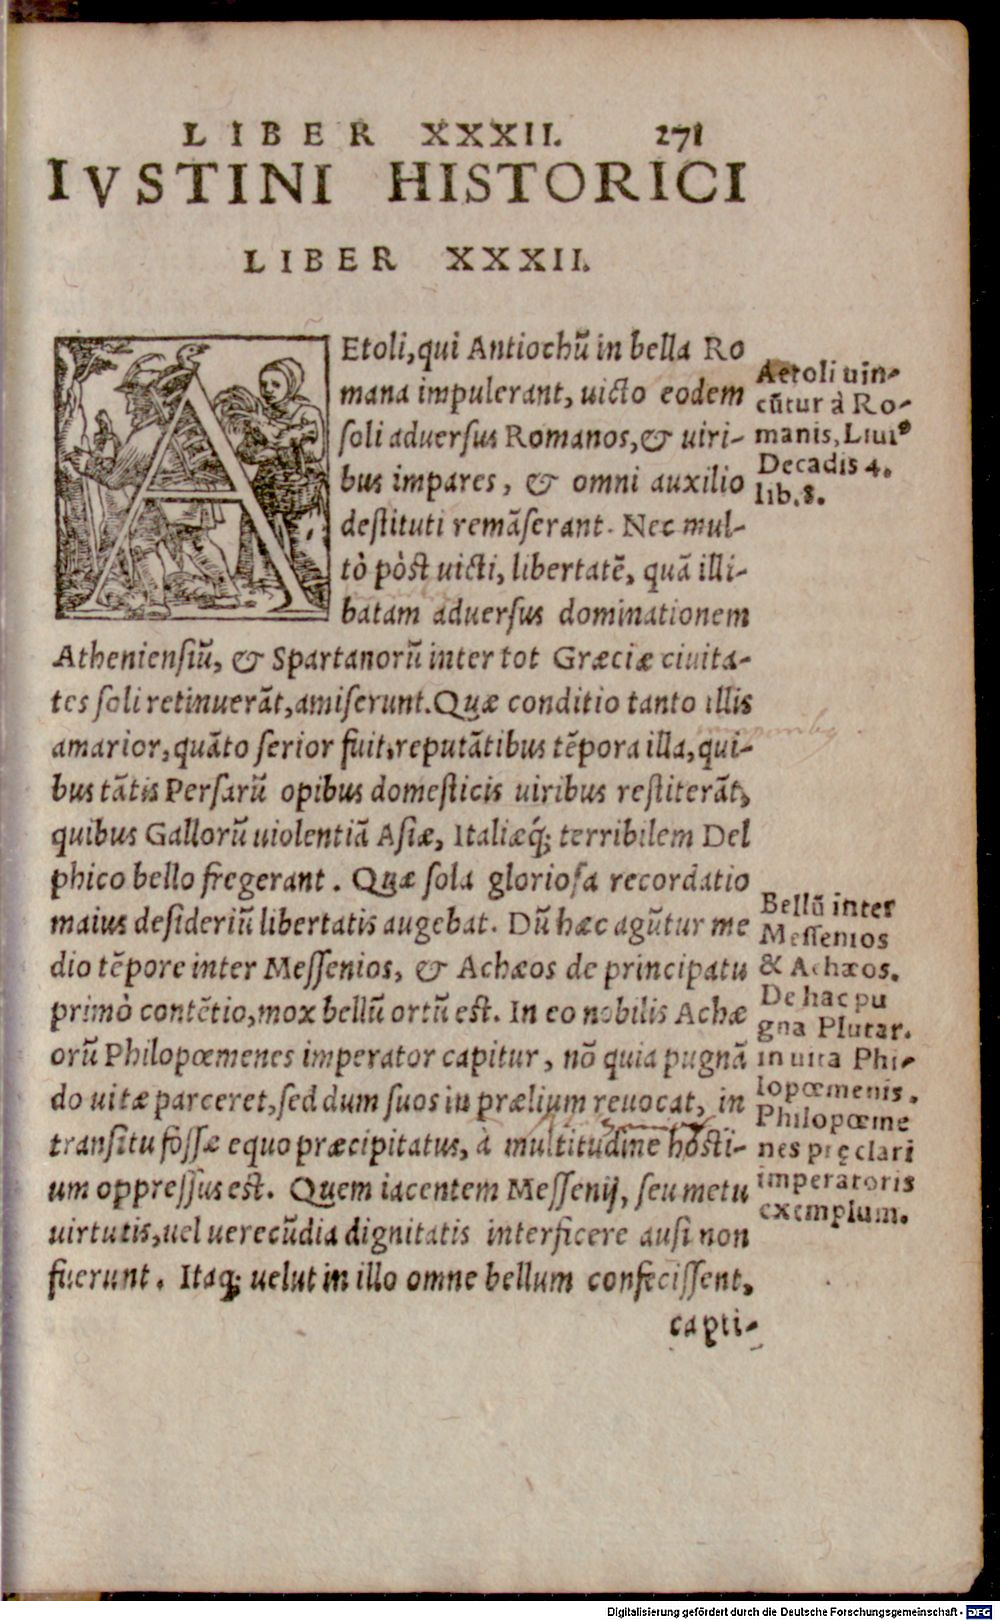 LIBER XXXII. 271
IVSTINI HISTORICI
LIBER XXXII.
AEtoli, qui Antiochũ in bella Ro
mana impulerant, uicto eodem
soli aduersus Romanos, & uiri-
bus impares, & omni auxilio
destituti remãserant. Nec mul-
tò pòst uicti, libertatẽ, quã illi-
batam aduersus dominationem
Atheniensiũ, & Spartanorũ inter tot Græciæ ciuita-
tes soli retinuerãt, amiserunt. Quæ conditio tanto illis
amarior, quãto serior fuit, reputãtibus tẽpora illa, qui-
bus tãtis Persarũ opibus domesticis uiribus restiterãt,
quibus Gallorũ uiolentiã Asiæ, Italiæq́; terribilem Del
phico bello fregerant. Quæ sola gloriosa recordatio
maius desideriũ libertatis augebat. Dũ hæc agũtur me
dio tẽpore inter Messenios, & Achæos de principatu
primò contẽtio, mox bellũ ortũ est. In eo nobilis Achæ
orũ Philopœmenes imperator capitur, nõ quia pugnã
do uitæ parceret, sed dum suos in prælium reuocat, in
transitu fossæ equo præcipitatus, à multitudine hosti-
um oppressus est. Quem iacentem Messenij, seu metu
uirtutis, uel uerecũdia dignitatis interficere ausi non
fuerunt. Itaq; uelut in illo omne bellum confecissent,
capti-
Aetoli uin-
cũtur à Ro-
manis, Liui⁹
Decadis 4.
lib. 8.
Bellũ inter
Messenios
& Achæos.
De hac pu
gna Plutar.
in uita Phi-
lopœmenis.
Philopœme
nes pręclari
imperatoris
exemplum.
Digitalisierung gefördert durch die Deutsche Forschungsgemeinschaft - DFG